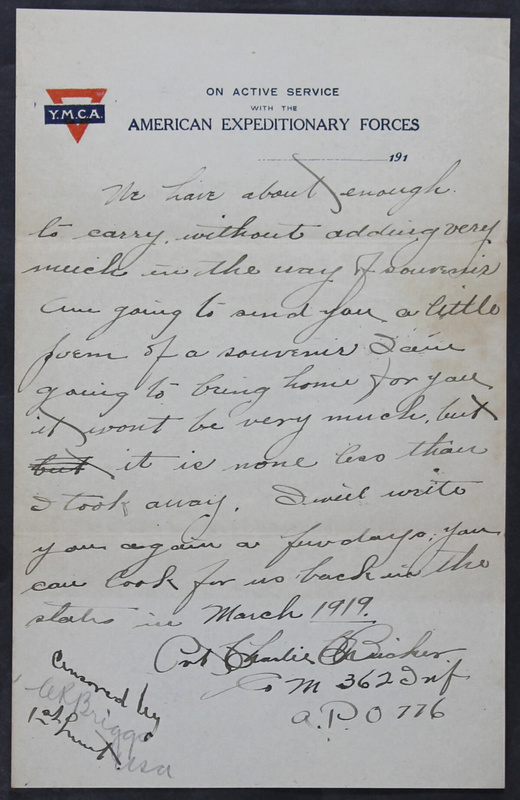 Y.M.C.A.
ON ACTIVE SERVICE
WITH THE
AMERICAN EXPEDITIONARY FORCES
191
We have about enough.
to carry, without adding very
much in the way of souvenir
am going to send you a little
poem of a souvenir I am
going to bring home for you
it wont be very much, but
but it is none less than
I took away. I will write
you again a few days, you
can look for us back in the
states in March 1919.
Pvt Charlie C Bricker
Co M 362 Inf
A.P.O 776
Censored by
CR Briggs
1st Lieut
USA